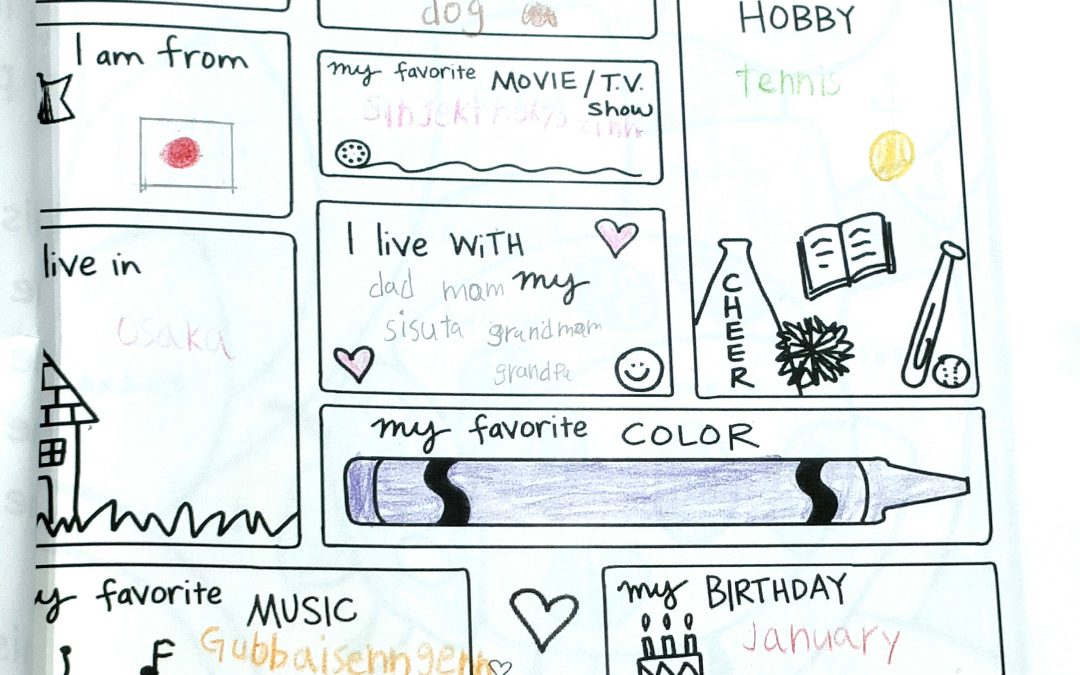 dog
HOBBY
tennis
I am from
my favorite MOVIE / T.V.
show
I live WITH
dad mam my
sisuta grandmam
grandpa
CHEER
live in
Osaka
my favorite COLOR
favorite MUSIC
Gubbaisenngenn
my BIRTHDAY
January